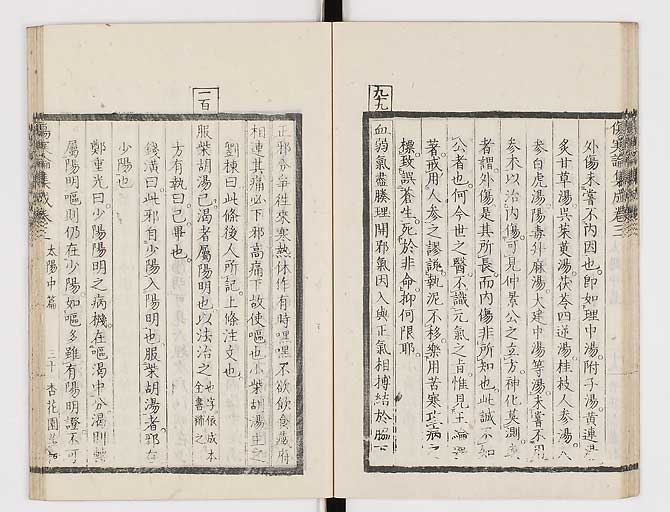 傷寒論集成卷三
外傷未嘗不内因也即如理中湯附子湯黄連湯
炙甘草湯呉茱萸湯茯苓四逆湯桂枝人参湯
参白虎湯陽毒升麻湯大建中湯等湯未嘗不用
参未以治内傷可見仲景公之立方神化莫測
者謂外傷是其所長而内傷非所知也此誠不知
公者也何今世之醫不識元氣之旨惟見
著戒用人参之謬説執泥不移樂用苦寒攻病之
標致誤蒼生死於非命抑何限耶
九九
血弱氣盡腠理開邪氣因入與正氣相搏結於脇下
正邪分爭往來寒熱休作有時嘿嘿不欲飲食藏府
相連其痛必下邪高痛下故使嘔也小柴胡湯主之
劉棟曰此條後人所記上條注文也
一百
服柴胡湯已渇者屬陽明也以法治之 也字依成本全書補之
方有執曰已畢也
錢潢曰此邪自少陽入陽明也服柴胡湯者邪在
少陽也
鄭重光曰少陽陽明之病機在嘔渇中分渇則轉
屬陽明嘔則仍在少陽如嘔多雖有陽明證不可
傷寒論集成卷三 太陽中篇 三十 杏花園